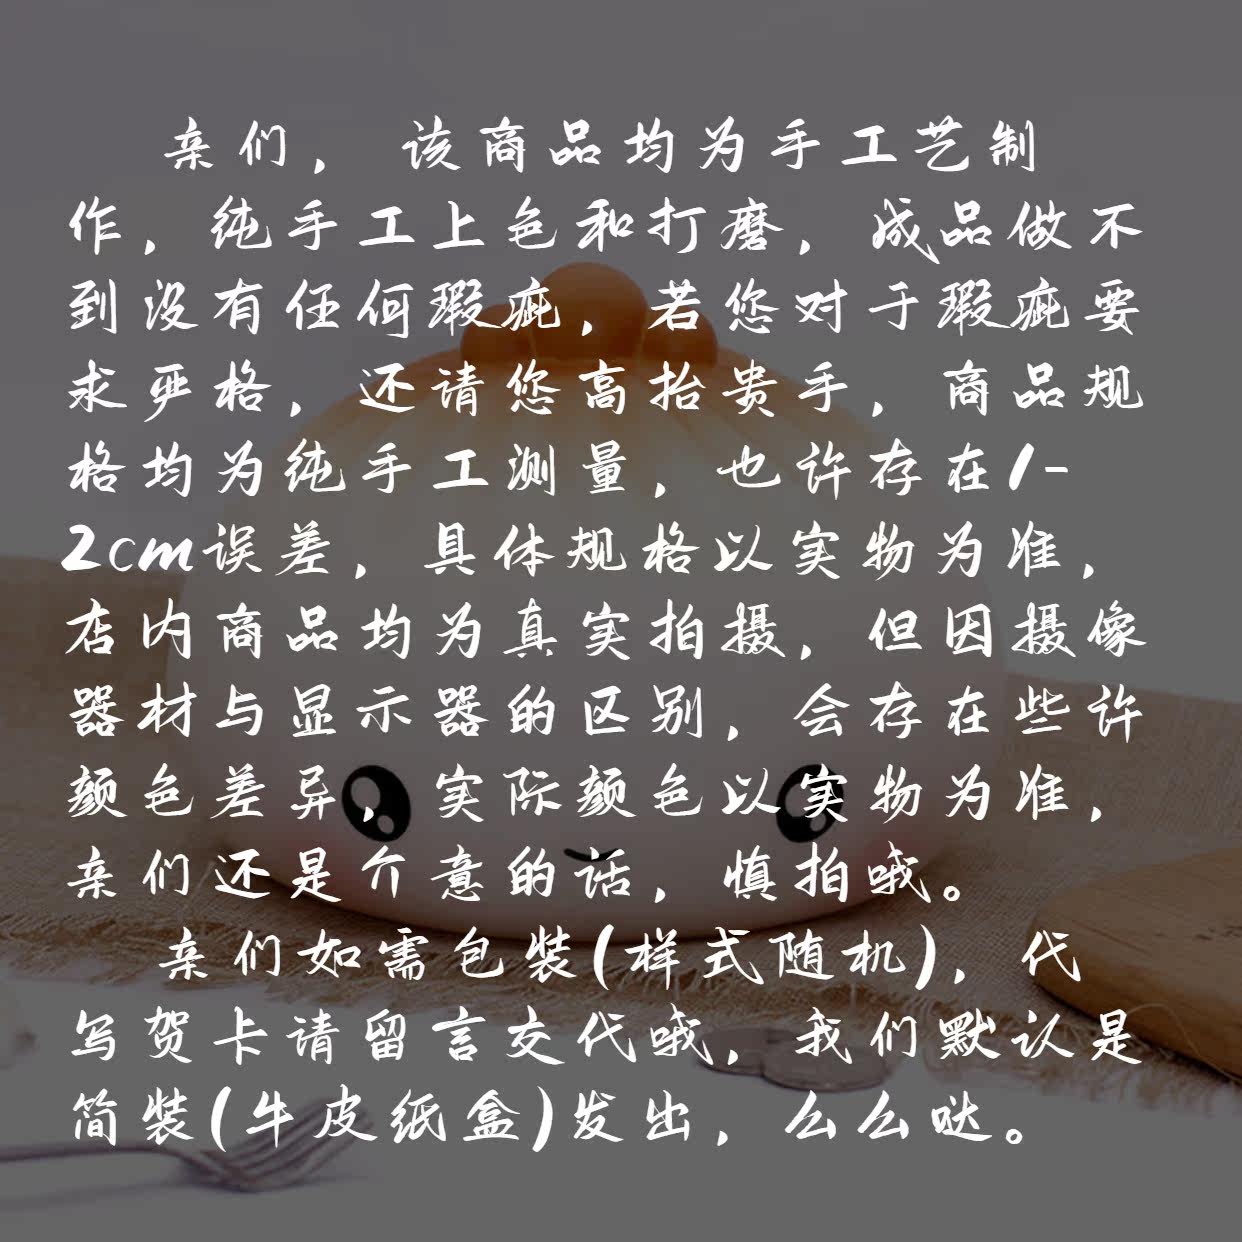 亲们，该商品均为手工艺制
作，纯手工上色和打磨，成品做不
到没有任何瑕疵，若您对于瑕疵要
求严格，还请您高抬贵手，商品规
格均为纯手工测量，也许存在1-
2cm误差，具体规格以实物为准，
店内商品均为真实拍摄，但因摄像
器材与显示器的区别，会存在些许
颜色差异，实际颜色以实物为准，
亲们还是介意的话，慎拍哦。
亲们如需包装(样式随机)，代
写贺卡请留言交代哦，我们默认是
简装(牛皮纸盒)发出，么么哒。